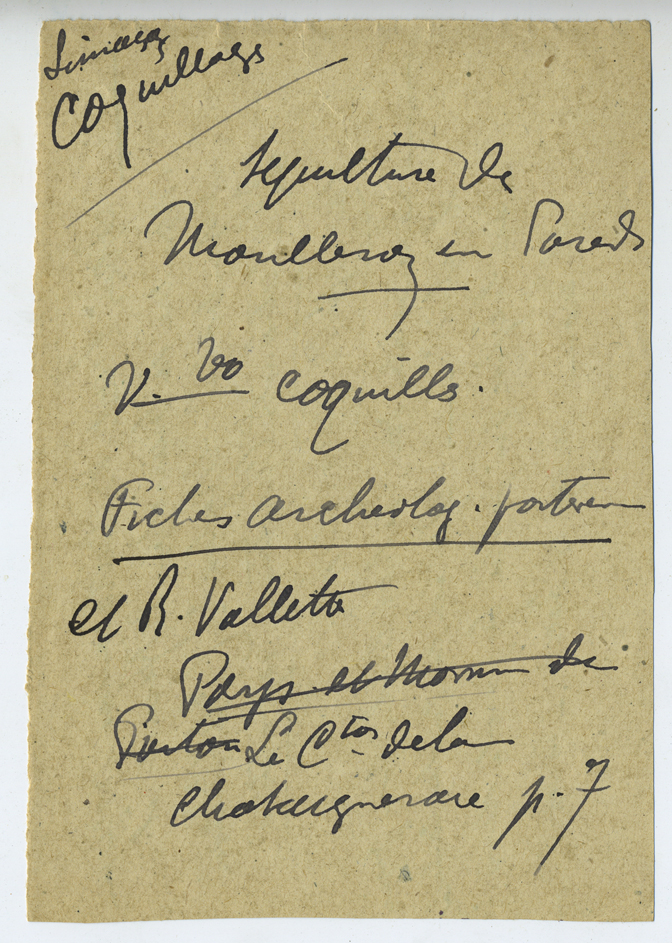 Limaces
Coquillages
Sépulture de
Mouilleron en Pareds
V. Vo coquills.
Fiches archéolog. poitevin
et R. Vallette
Pays et Monum du
Poitou Le Cton de la
Chataigneraie p. 7